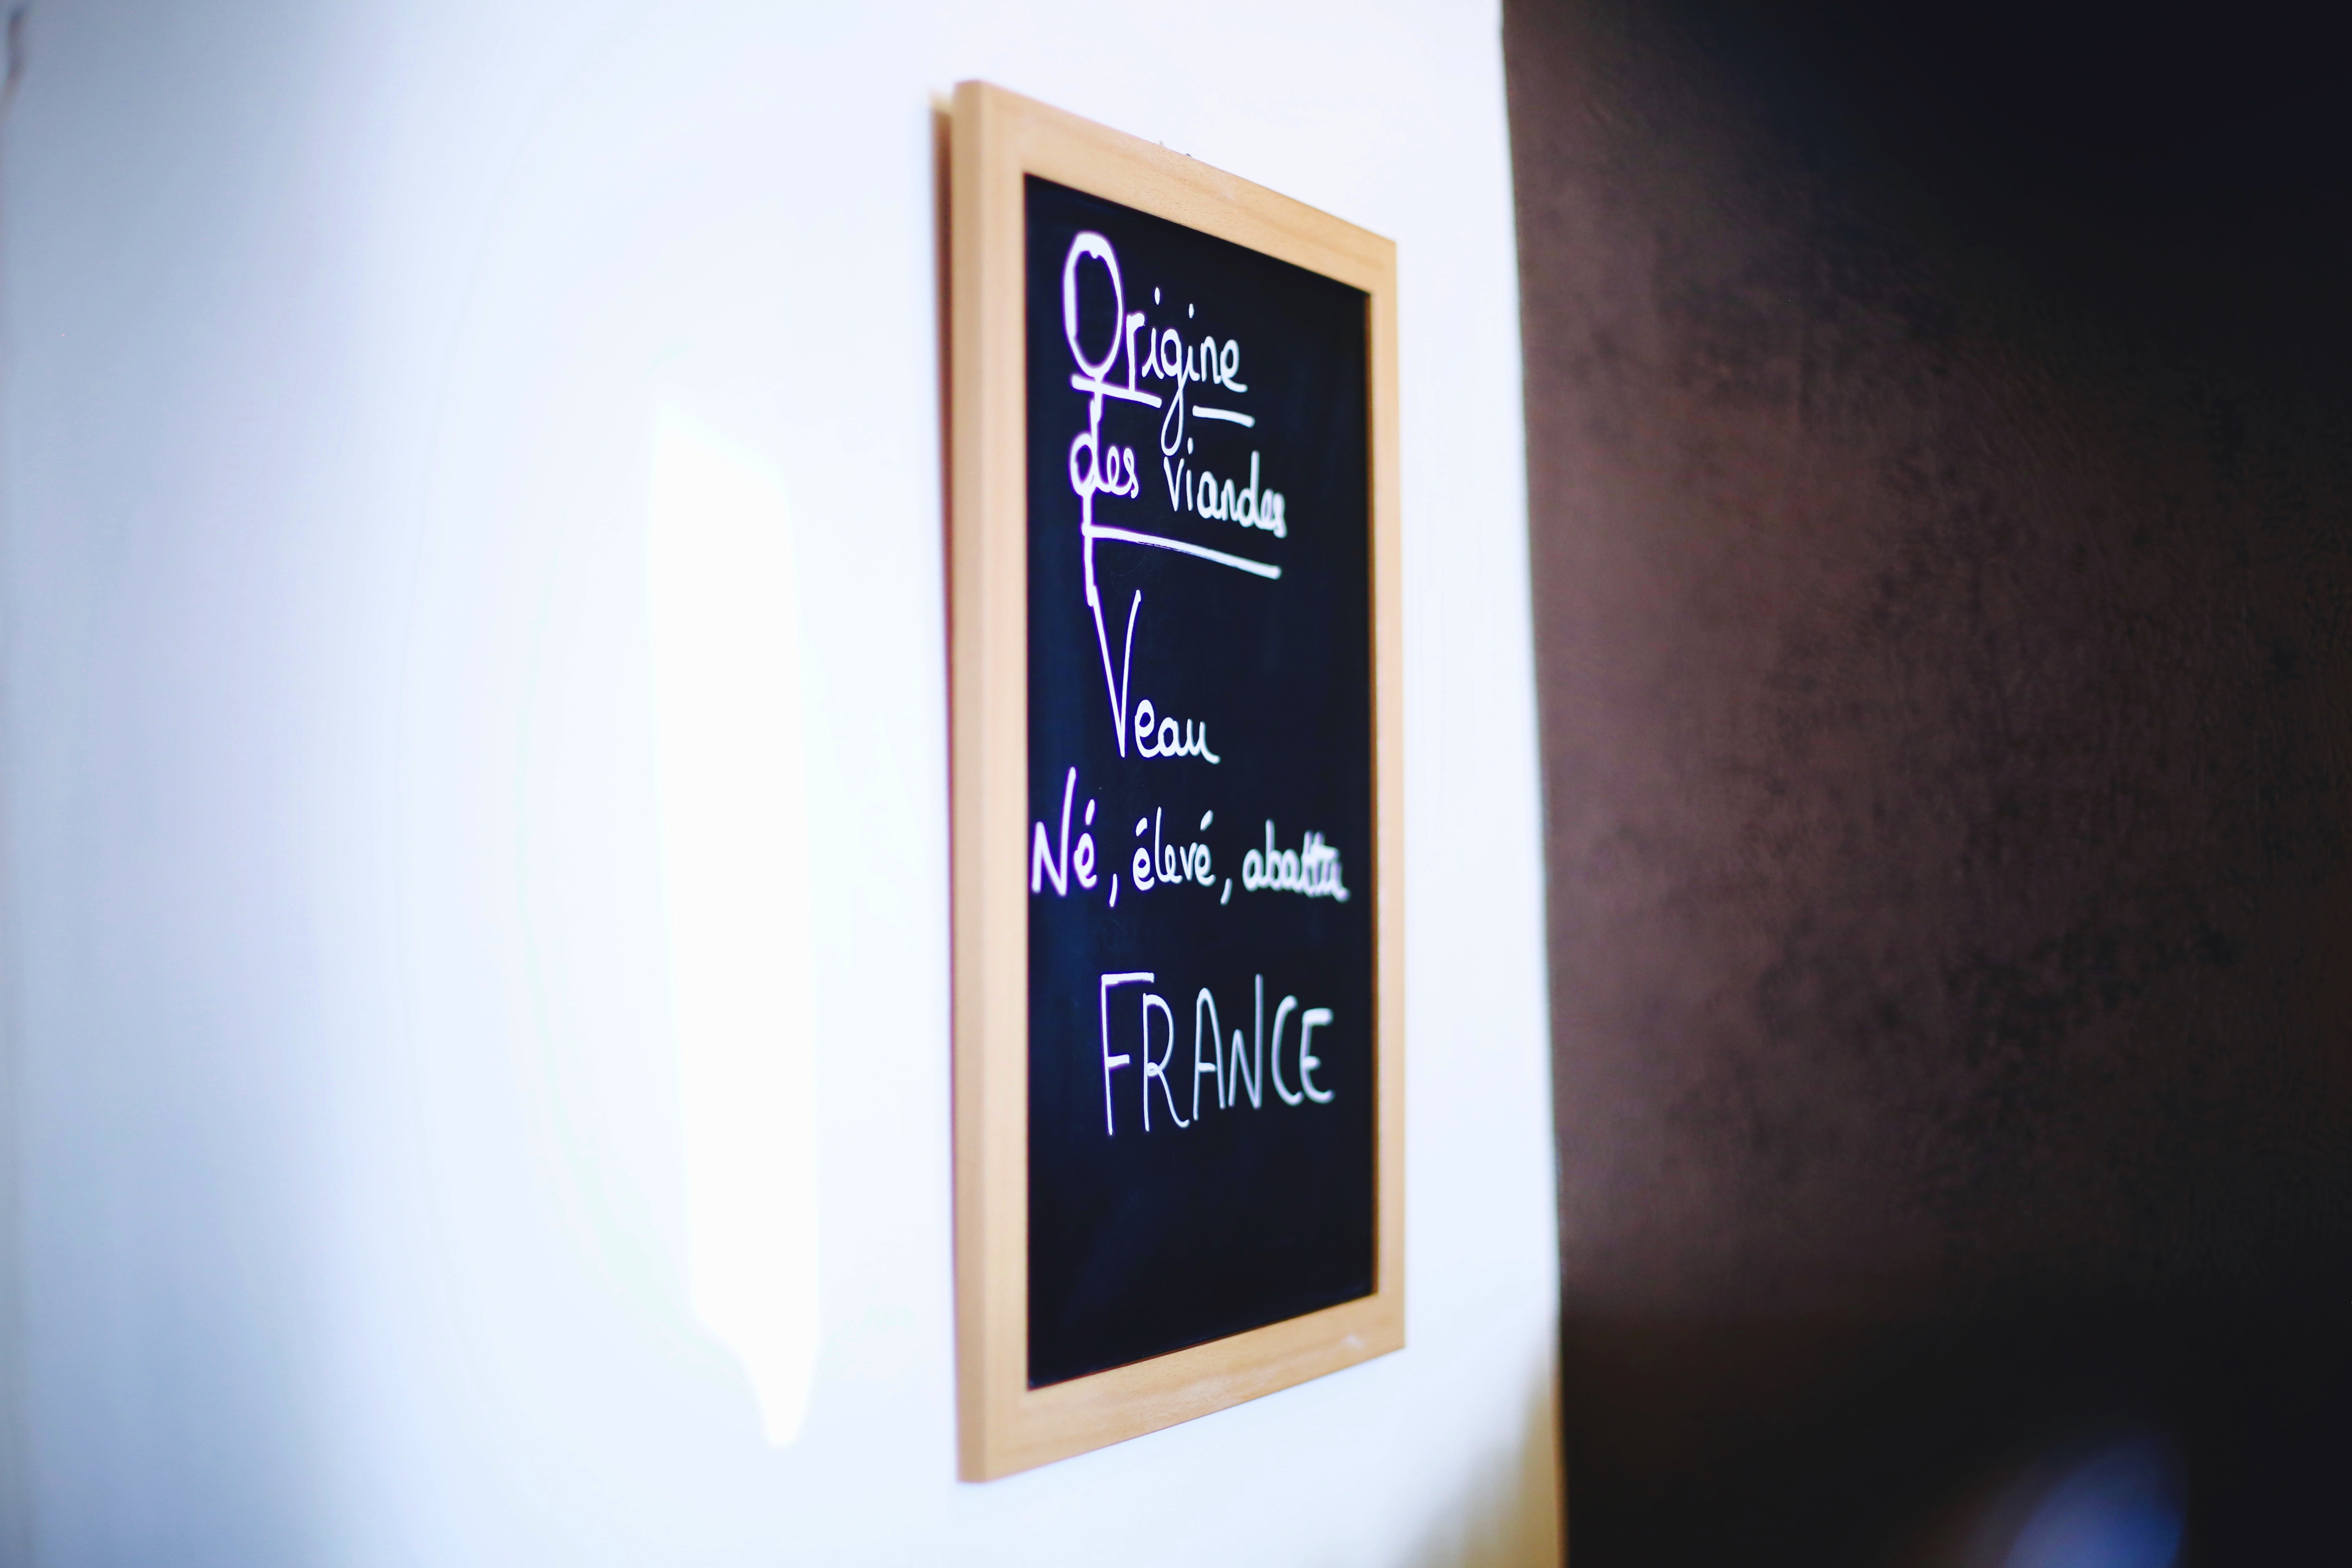 Origine
des viandes
Veau
Né, élevé, abattu
FRANCE